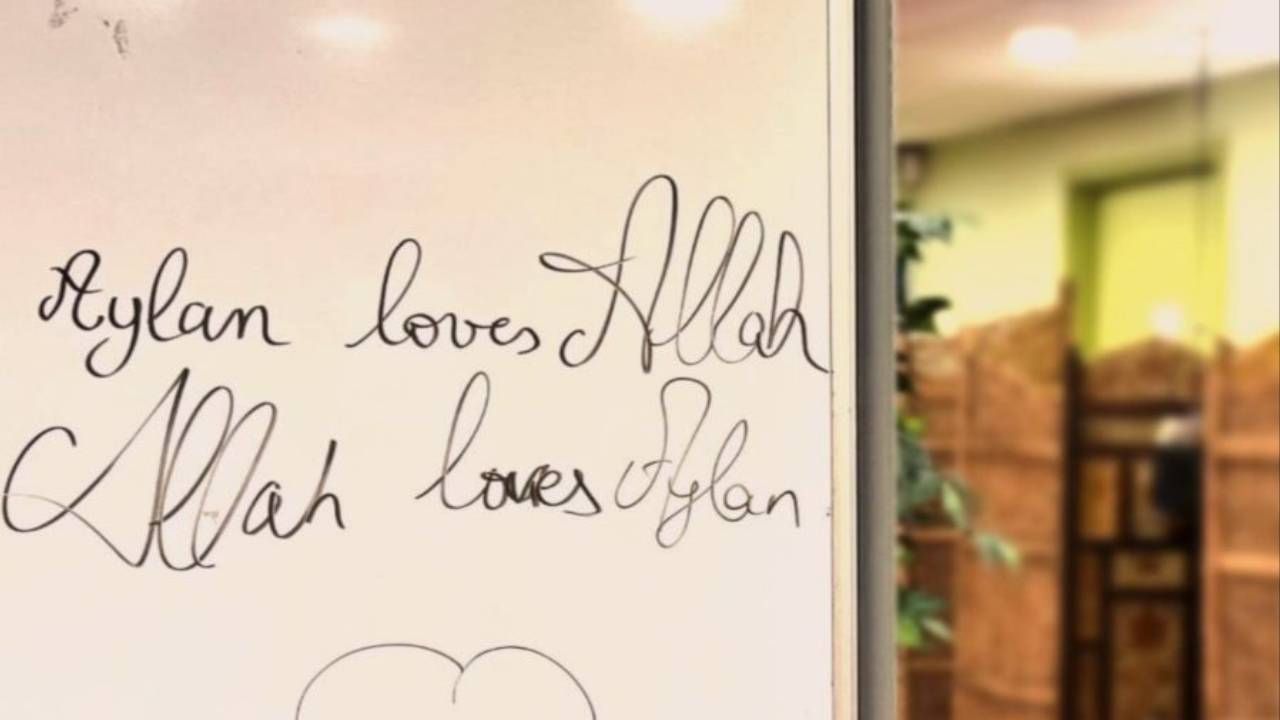 Aylan loves Allah
Allah loves Aylan